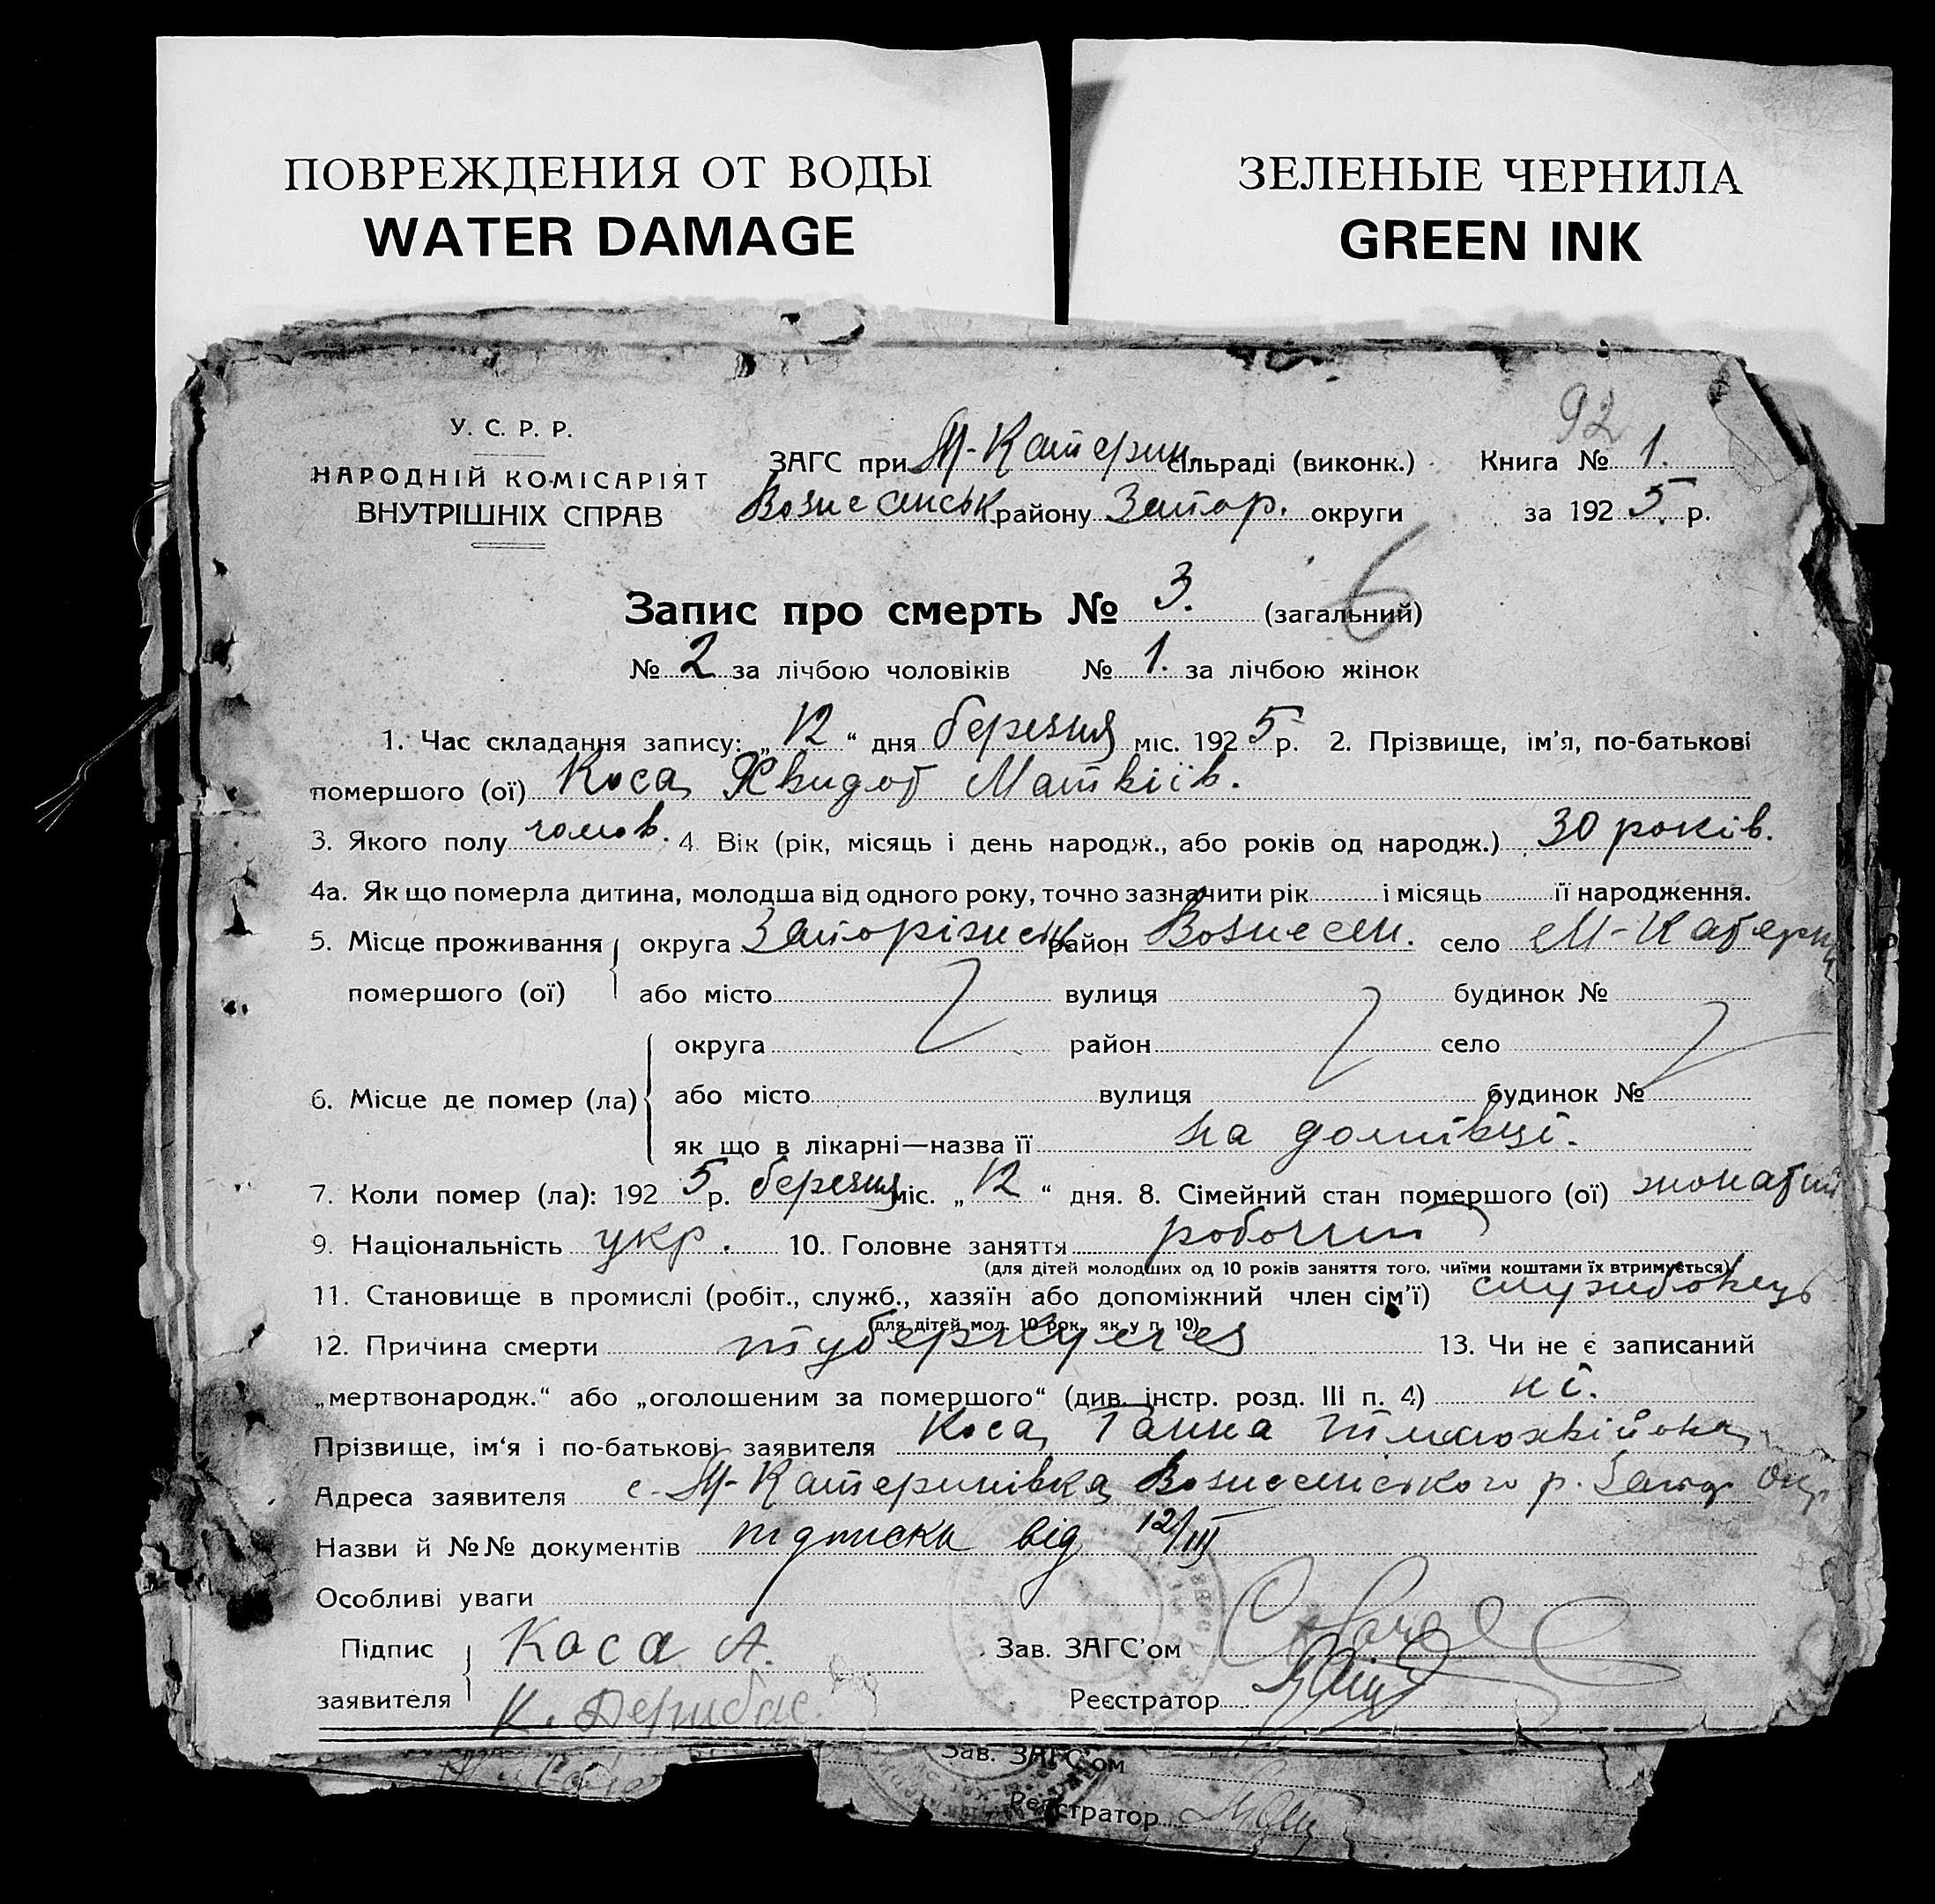 ПОВРЕЖДЕНИЯ ОТ ВОДЫ
WATER DAMAGE
ЗЕЛЕНЫЕ ЧЕРНИЛА
GREEN INK
92
У. С. Р. Р.
НАРОДНІЙ КОМІСАРІЯТ
ВНУТРІШНІХ СПРАВ
ЗАГС при М-Катерин. сільраді (виконк.) Книга № 1.
Вознесенськ. району Запор. округи за 1925 р.
Запис про смерть № 3. (загальний) 6
№ 2 за лічбою чоловіків № 1. за лічбою жінок
1. Час складання запису: „12“ дня березня міс. 1925 р. 2. Прізвище, ім’я, по-батькові
помершого (ої) Коса Хвидот Матвіїв.
3. Якого полу чолов. 4. Вік (рік, місяць і день народж., або років од народж.) 30 років.
4а. Як що померла дитина, молодша від одного року, точно зазначити рік і місяць її народження.
5. Місце проживання округа Запоріжськ район Вознесен. село М-Катерин
помершого (ої) або місто вулиця будинок №
округа район село
6. Місце де помер (ла) або місто вулиця будинок №
як що в лікарні—назва її на домівці.
7. Коли помер (ла): 1925 р. березня міс. „12“ дня. 8. Сімейний стан помершого (ої) жонатий
9. Національність укр. 10. Головне заняття робочий
(для дітей молодших од 10 років заняття того, чиїми коштами їх втримується)
11. Становище в промислі (робіт., служб., хазяїн або допоміжний член сім’ї) службовець
(для дітей мол. 10 рок. як у п. 10)
12. Причина смерти туберкульоз 13. Чи не є записаний
„мертвонародж.“ або „оголошеним за помершого“ (див. інстр. розд. III п. 4) ні.
Прізвище, ім‘я і по-батькові заявителя Коса Ганна
Адреса заявителя с. М-Катеринівка Вознесенського р. Запор Окр
Назви й №№ документів підписка від 12/III
Особливі уваги
Підпис Коса А. Зав. ЗАГС’ом
заявителя К. Дерибас Реєстратор
Зав. ЗАГС’ом
Реєстратор